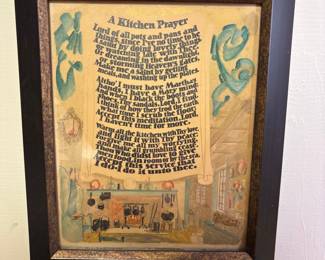 A Kitchen Prayer
Lord of all pots and pans and
things, since I've no time to be
a saint by doing lovely things
or watching late with Thee,
or dreaming in the dawnlight
or storming Heaven's gates,
Make me a saint by getting
meals, and washing up the plates.
Altho' I must have Martha's
hands, I have a Mary mind;
And when I black the boots and
shoes, Thy sandals, Lord, I find.
I think of how they trod the earth,
what time I scrub the floor;
Accept this meditation, Lord,
I haven't time for more.
Warm all the kitchen with Thy love,
and light it with Thy peace;
Forgive me all my worrying,
and make all grumbling cease.
Thou who didst love to give
men food, in room or by the sea,
Accept this service that
I do, I do it unto Thee.